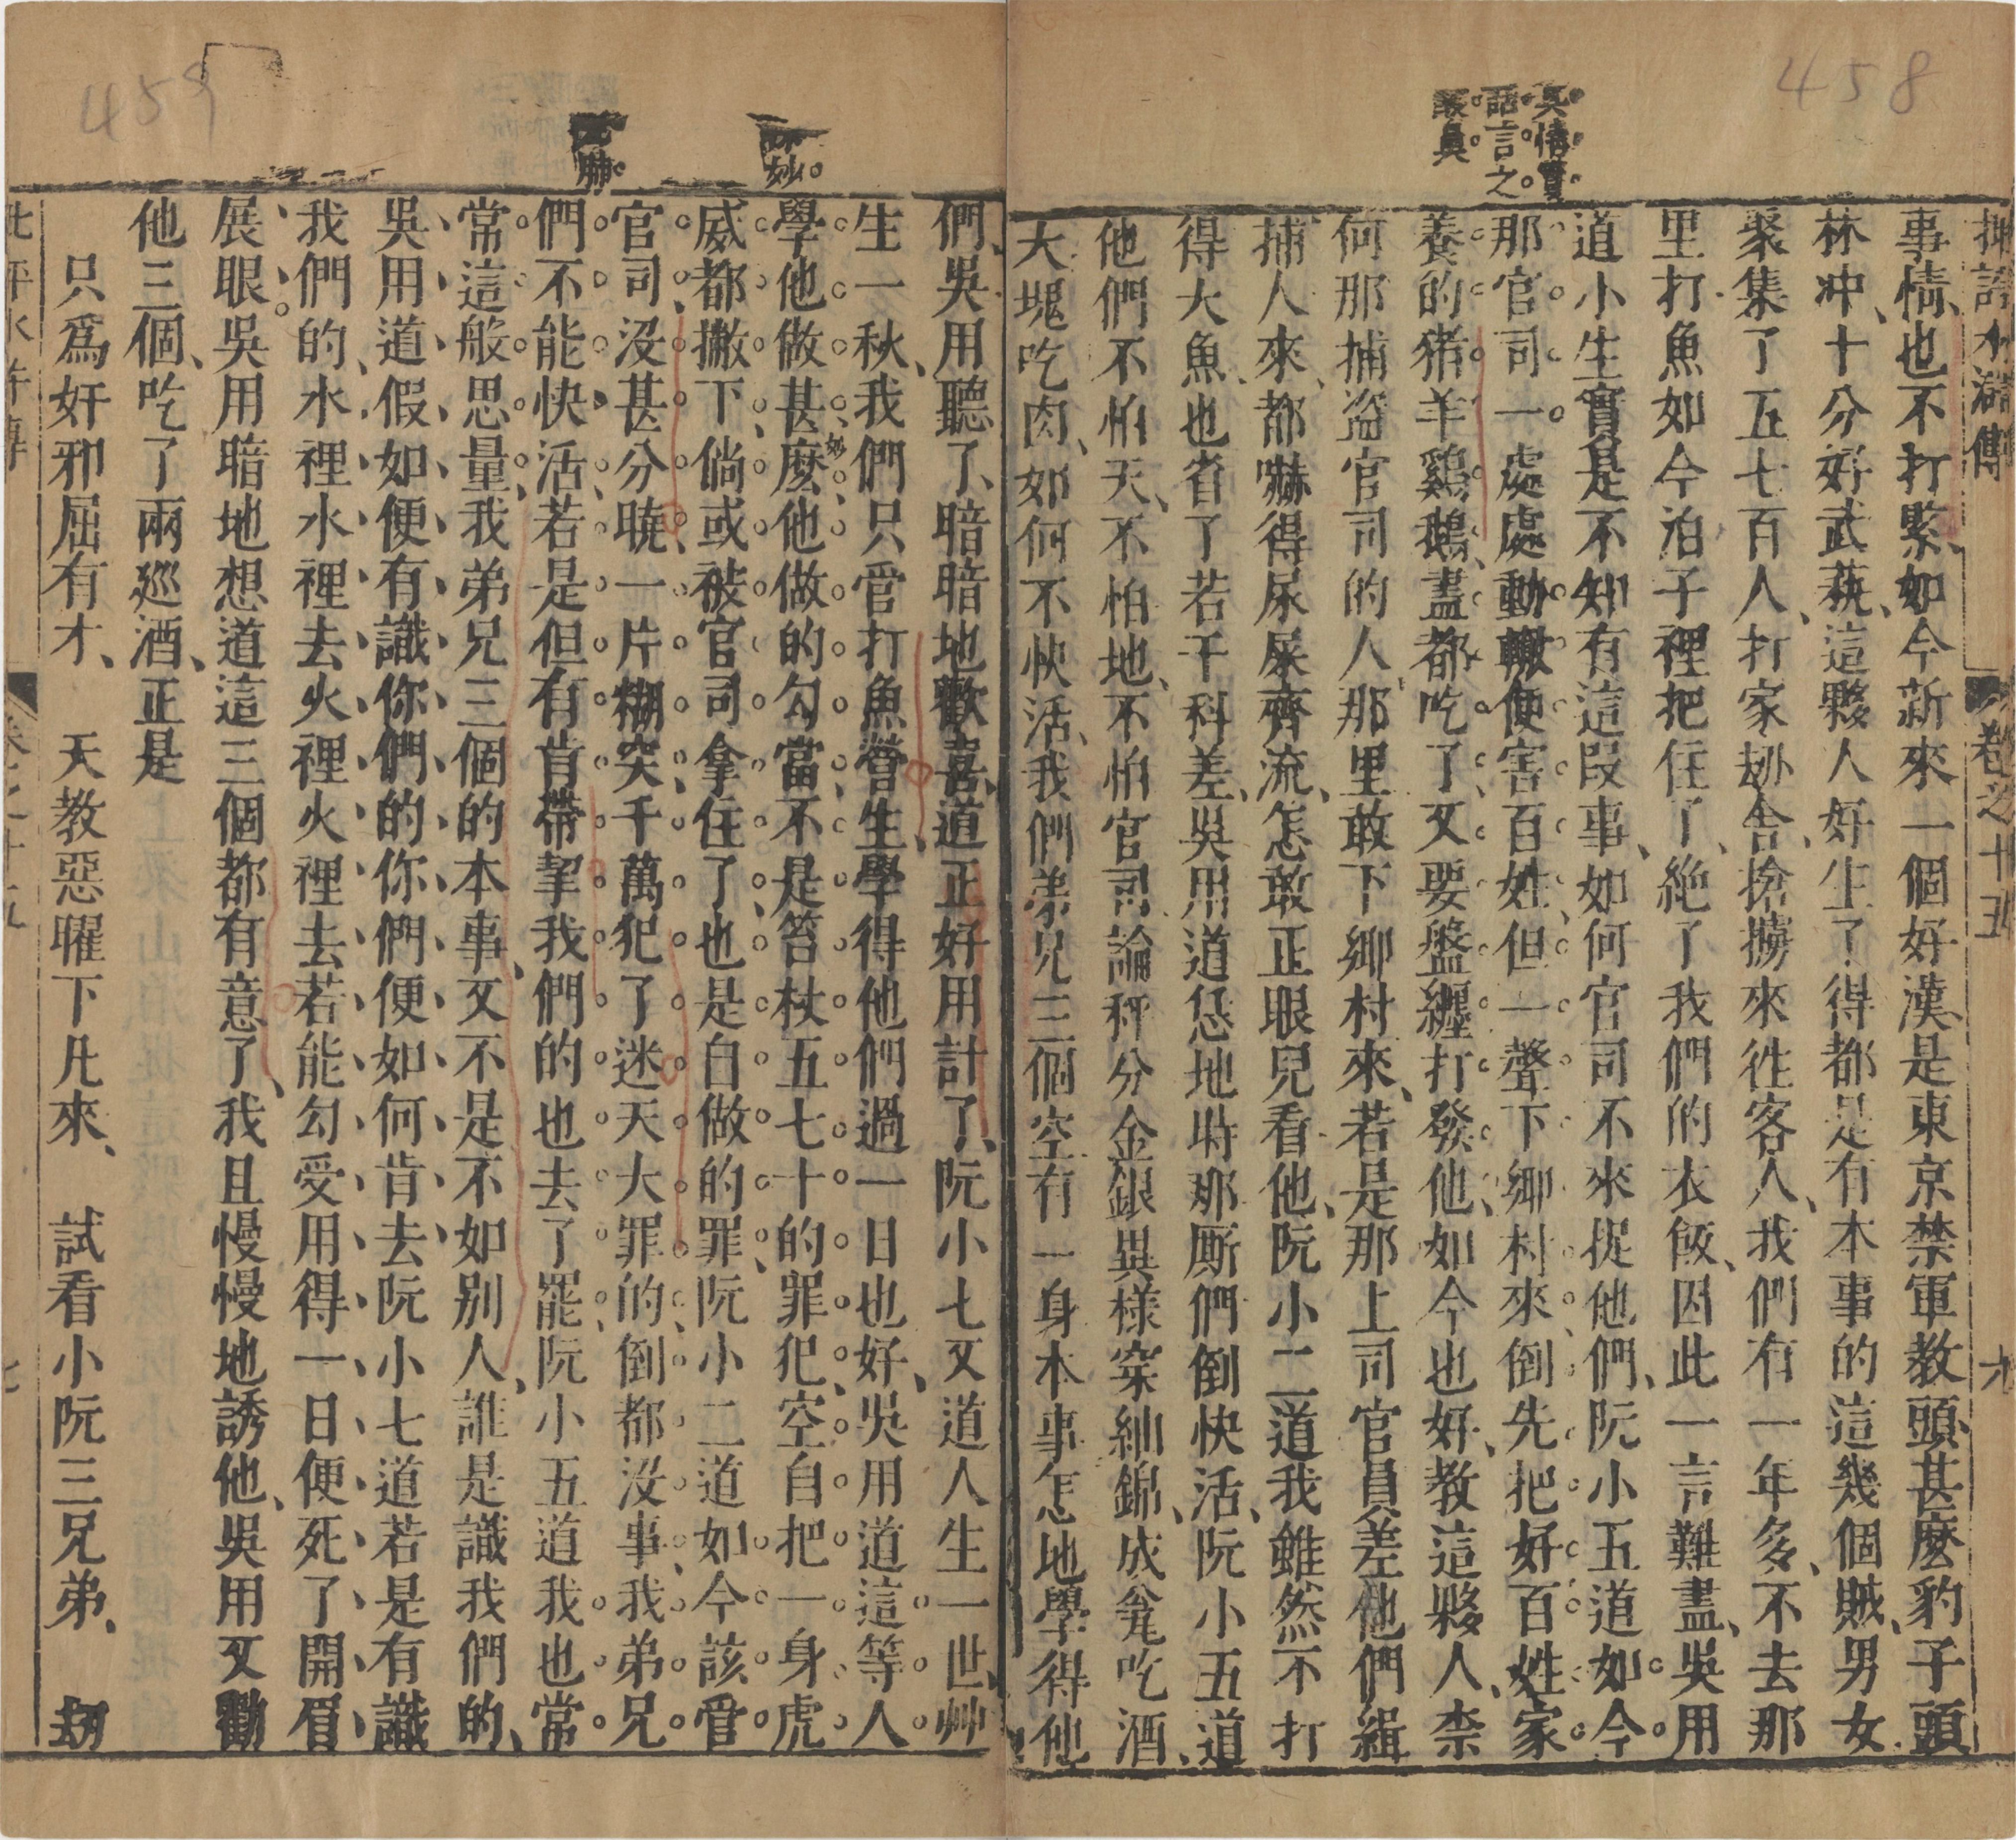 458
真情實
話言之
最真
批評水滸傳
卷之十五
事情、也不打緊、如今新來一個好漢、是東京禁軍教頭、甚麼豹子頭
林冲、十分好武藝、這夥人好生了得、都是有本事的、這幾個賊男女
聚集了五七百人、打家刼舍、搶擄來徃客人、我們有一年多不去那
里打魚、如今泊子裡把住了、絶了我們的衣飯、因此一言難盡、吳用
道小生實是不知有這段事、如何官司不來捉他們、阮小五道如今
那官司一處處動轍便害百姓、但一聲下鄉村來、倒先把好百姓家
養的猪羊鷄鵝、盡都吃了、又要盤纏打發他、如今也好、教這夥人柰
何、那捕盗官司的人、那里敢下鄉村來、若是那上司官員差他們緝
捕人來、都嚇得尿屎齊流、怎敢正眼兒看他、阮小二道我雖然不打
得大魚、也省了若干科差、吳用道恁地時、那厮們倒快活、阮小五道
他們不怕天、不怕地、不怕官司、論秤分金銀、異樣穿紬錦、成瓮吃酒、
大塊吃肉、如何不快活、我們弟兄三個、空有一身本事、怎地學得他
459
妙
們、吳用聽了、暗暗地歡喜、道正好用計了、阮小七又道人生一世、艸
生一秋、我們只管打魚營生、學得他們過一日也好、吳用道這等人
學他做甚麼、妙他做的勾當、不是笞杖五七十的罪犯、空自把一身虎
威都撇下、倘或被官司拿住了、也是自做的罪、阮小二道如今該管
官司、没甚分曉、一片糊突、千萬犯了迷天大罪的、倒都没事、我弟兄
們不能快活、若是但有肯帶挈我們的、也去了罷、阮小五道我也常
常這般思量、我弟兄三個的本事、又不是不如别人、誰是識我們的、
吳用道假如便有識你們的、你們便如何肯去、阮小七道若是有識
我們的、水裡水裡去、火裡火裡去、若能勾受用得一日、便死了開眉
展眼、吳用暗地想道這三個都有意了、我且慢慢地誘他、吳用又勸
他三個、吃了兩巡酒、正是
只爲奸邪屈有才、 天教惡曜下凡來、 試看小阮三兄弟、 刼